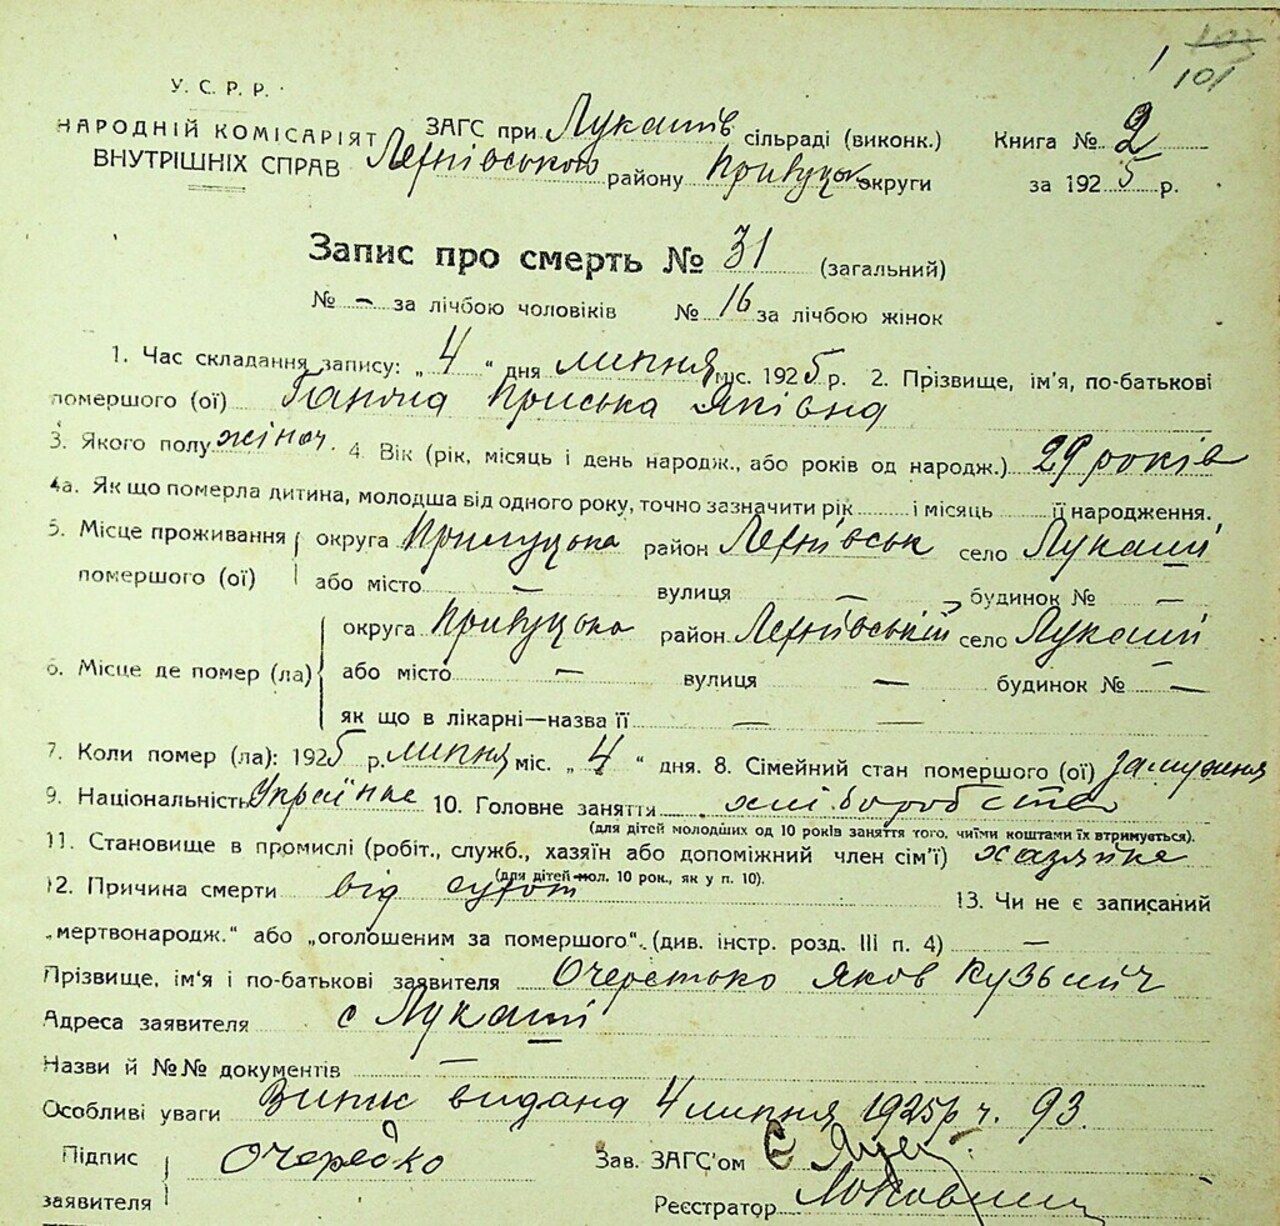 103
101
У. С. Р. Р.
НАРОДНІЙ КОМІСАРІЯТ
ВНУТРІШНІХ СПРАВ
ЗАГС при Лукашів сільраді (виконк.)
району округи
Книга № 2
за 1925 р.
Запис про смерть № 31 (загальний)
№ – за лічбою чоловіків № 16 за лічбою жінок
1. Час складання запису: „ 4 “ дня липня міс. 1925 р. 2. Прізвище, ім'я, по-батькові
помершого (ої) Приська Яківна
3. Якого полу жіноч. 4. Вік (рік, місяць і день народж., або років од народж.) 29 років
4а. Як що померла дитина, молодша від одного року, точно зазначити рік і місяць її народження.
5. Місце проживання помершого (ої)
округа Прилуцька район село Лукаші
або місто — вулиця — будинок № —
6. Місце де помер (ла)
округа Прилуцька район село Лукаші
або місто — вулиця — будинок № —
як що в лікарні—назва її — —
7. Коли помер (ла): 1925 р. липня міс. „ 4 “ дня. 8. Сімейний стан помершого (ої) замужня
9. Національність Українка 10. Головне заняття хліборобство
(для дітей молодших од 10 років заняття того, чиїми коштами їх втримується).
11. Становище в промислі (робіт., служб., хазяїн або допоміжний член сім'ї) хазяйка
(для дітей мол. 10 рок., як у п. 10).
12. Причина смерти від сухот 13. Чи не є записаний
„мертвонародж.“ або „оголошеним за помершого“. (див. інстр. розд. III п. 4) —
Прізвище, ім'я і по-батькові заявителя Яков Кузьмич
Адреса заявителя с Лукаші
Назви й №№ документів —
Особливі уваги видана 4 липня 1925 р ч. 93.
Підпис заявителя Очередко
Зав. ЗАГС'ом
Реєстратор